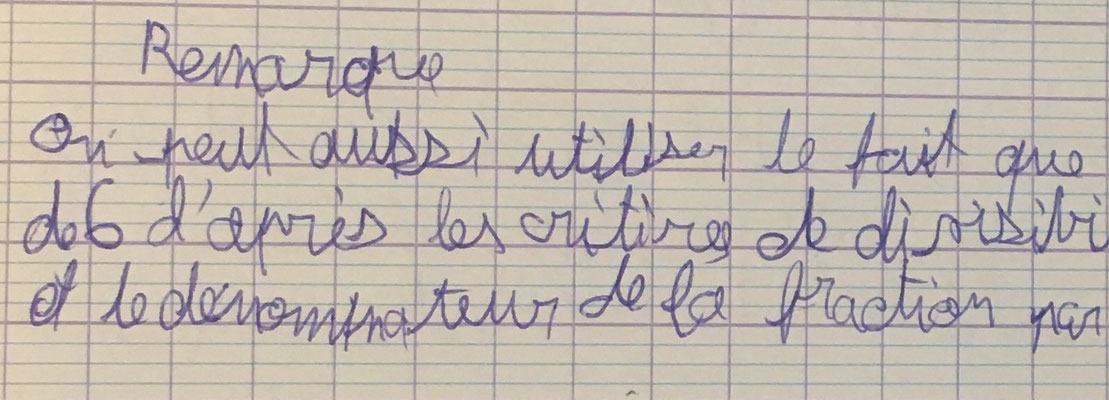 Remarque
On peut aussi utiliser le fait que
de 6 d'après les critires de divisibi
et le dénominateur de la fraction par